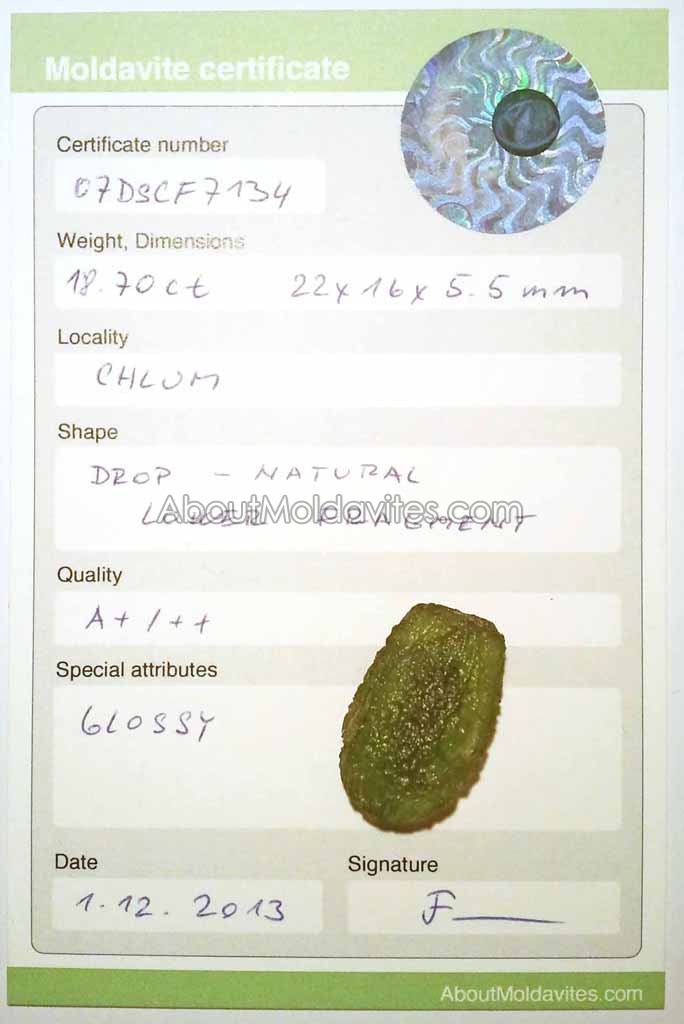 Moldavite certificate
Certificate number
07DSCF7134
Weight, Dimensions
18.70ct 22x16x5.5mm
Locality
CHLUM
Shape
DROP - NATURAL
LOWER FRAGMENT
AboutMoldavites.com
Quality
A+/++
Special attributes
GLOSSY
Date Signature
1.12.2013 F
AboutMoldavites.com